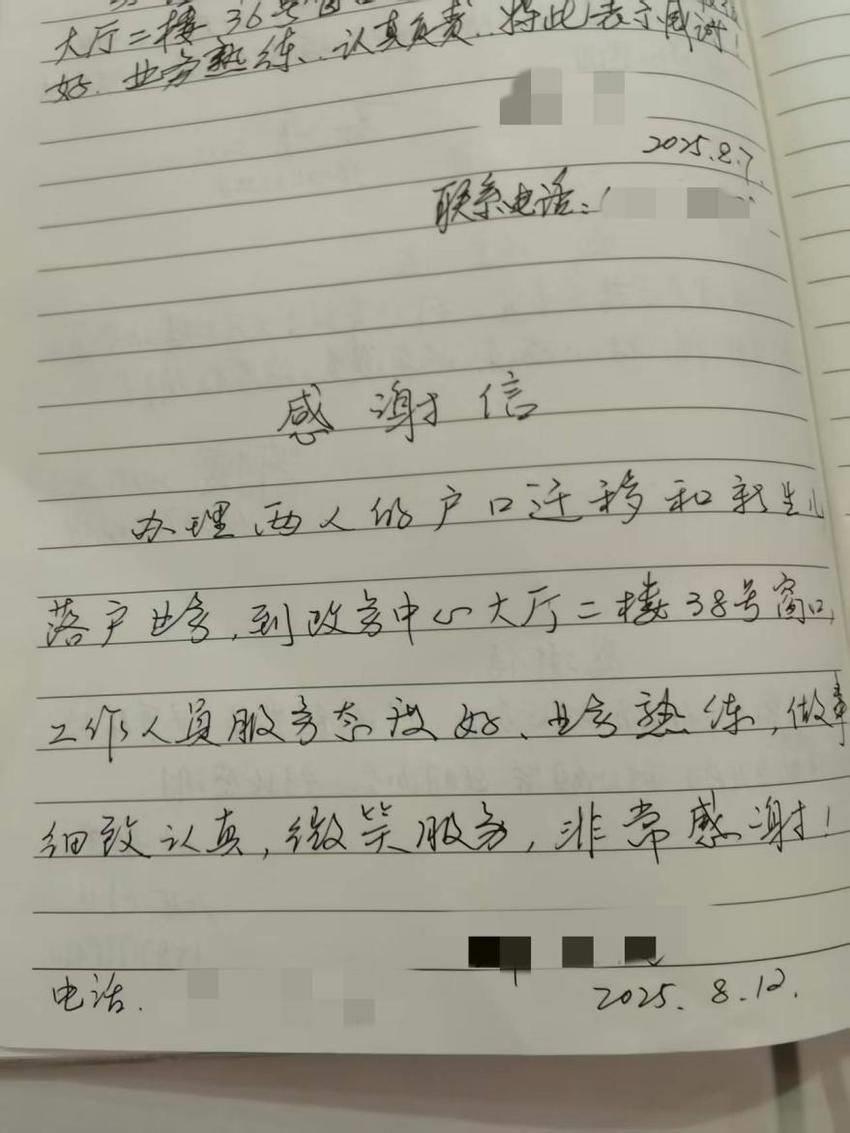 大厅二楼36号窗口
好、业务熟练、认真负责,特此表示感谢!
2025.8.7
联系电话:
感谢信
办理两人的户口迁移和新生儿
落户业务,到政务中心大厅二楼38号窗口,
工作人员服务态度好、业务熟练,做事
细致认真,微笑服务,非常感谢!
电话.
2025.8.12.